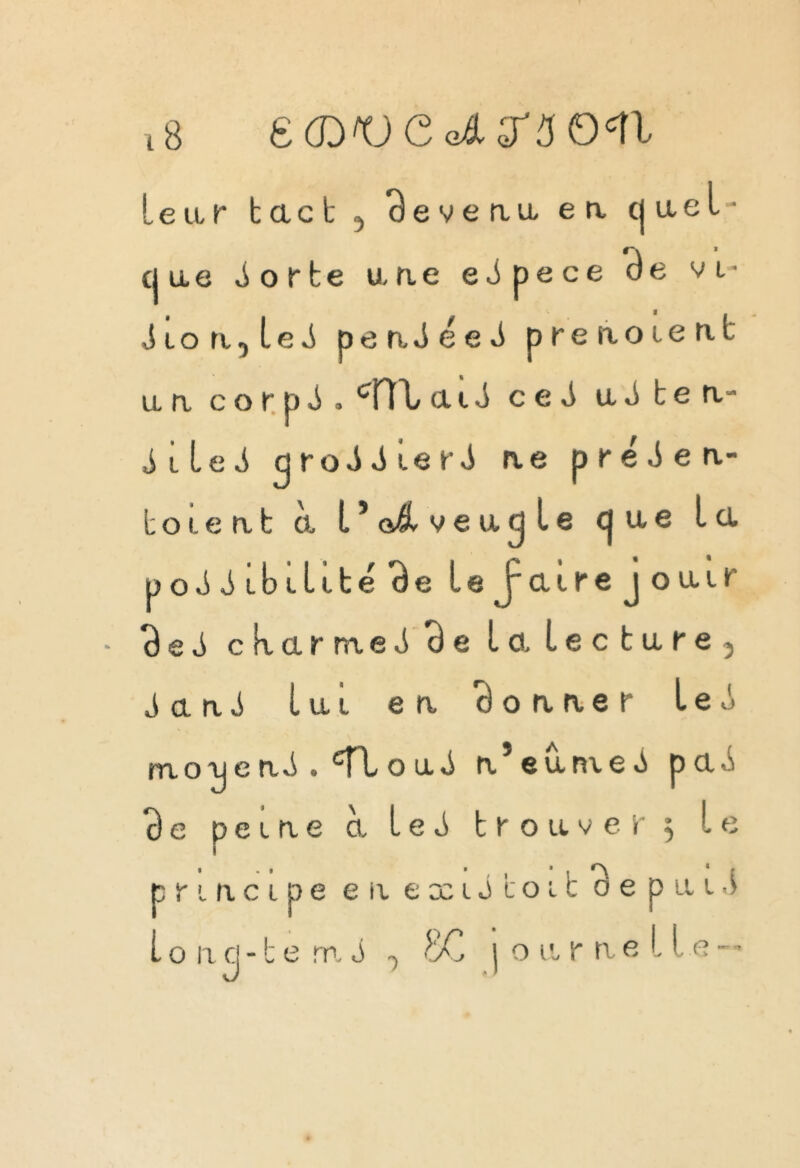 18 EDUCATION
leur tact, devenu en quel-
que sorte une espece de vi-
sion, les pensées prenoient
un corps. Mais ces usten-
siles grossiers ne présen-
toient à l'Aveugle que la
possibilité de le faire jouir
des charmes de la lecture,
sans lui en donner les
moyens. Nous n'eûmes pas
de peine à les trouver; le
principe en existoit depuis
long-tems, & journelle-